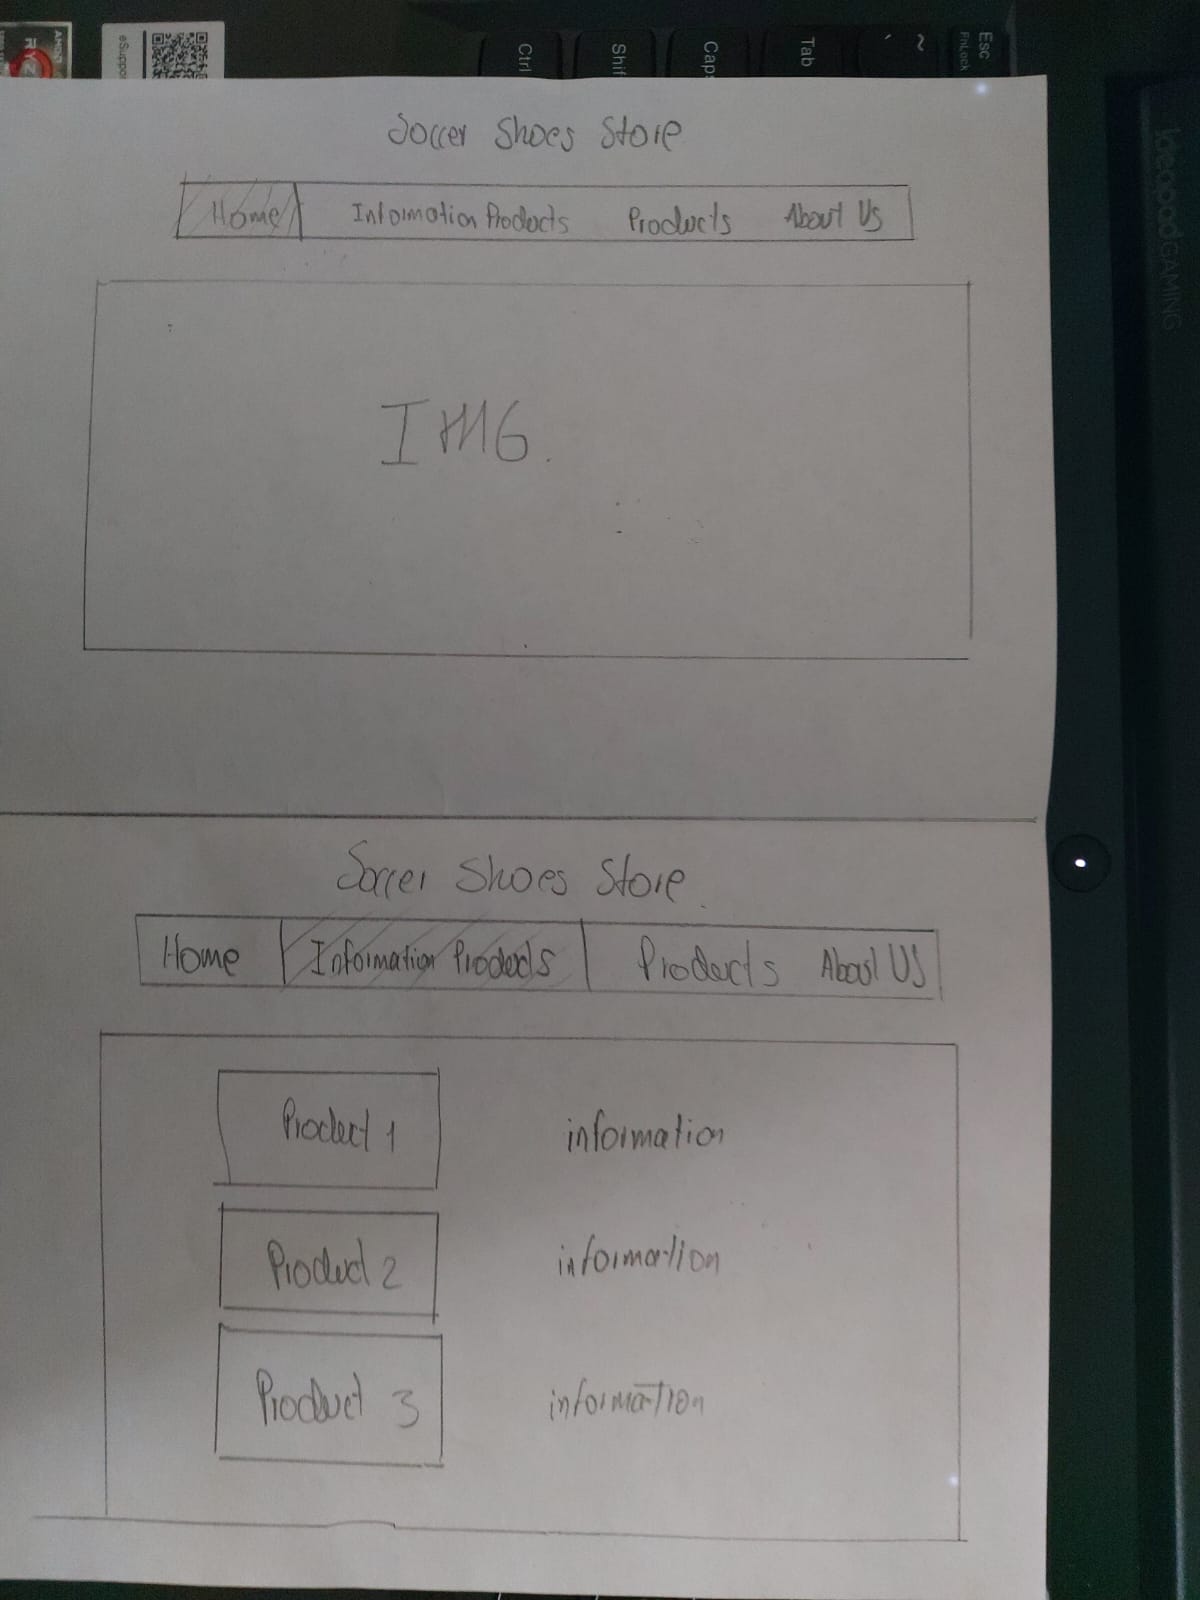 AMD
RYZ
eSuppo
Ctrl
Shif
Cap
Tab
` ~
Esc
FnLock
ideapad GAMING
Soccer Shoes Store
Home Information Products Products About Us
IMG.
Soccer Shoes Store.
Home Information Products Products About US
Product 1 information
Product 2 information
Product 3 information